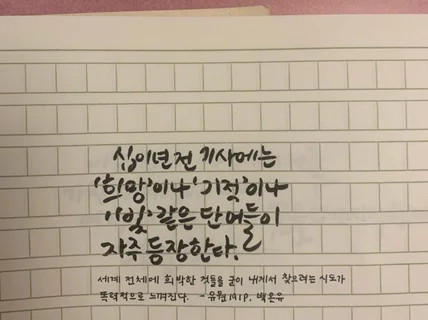 십이년 전 기사에는
'희망'이나 '기적'이나
'빛' 같은 단어들이
자주 등장한다.
세계 전체에 희박한 것들을 굳이 내게서 찾으려는 시도가
폭력적으로 느껴진다. - 유원 141P, 백온유